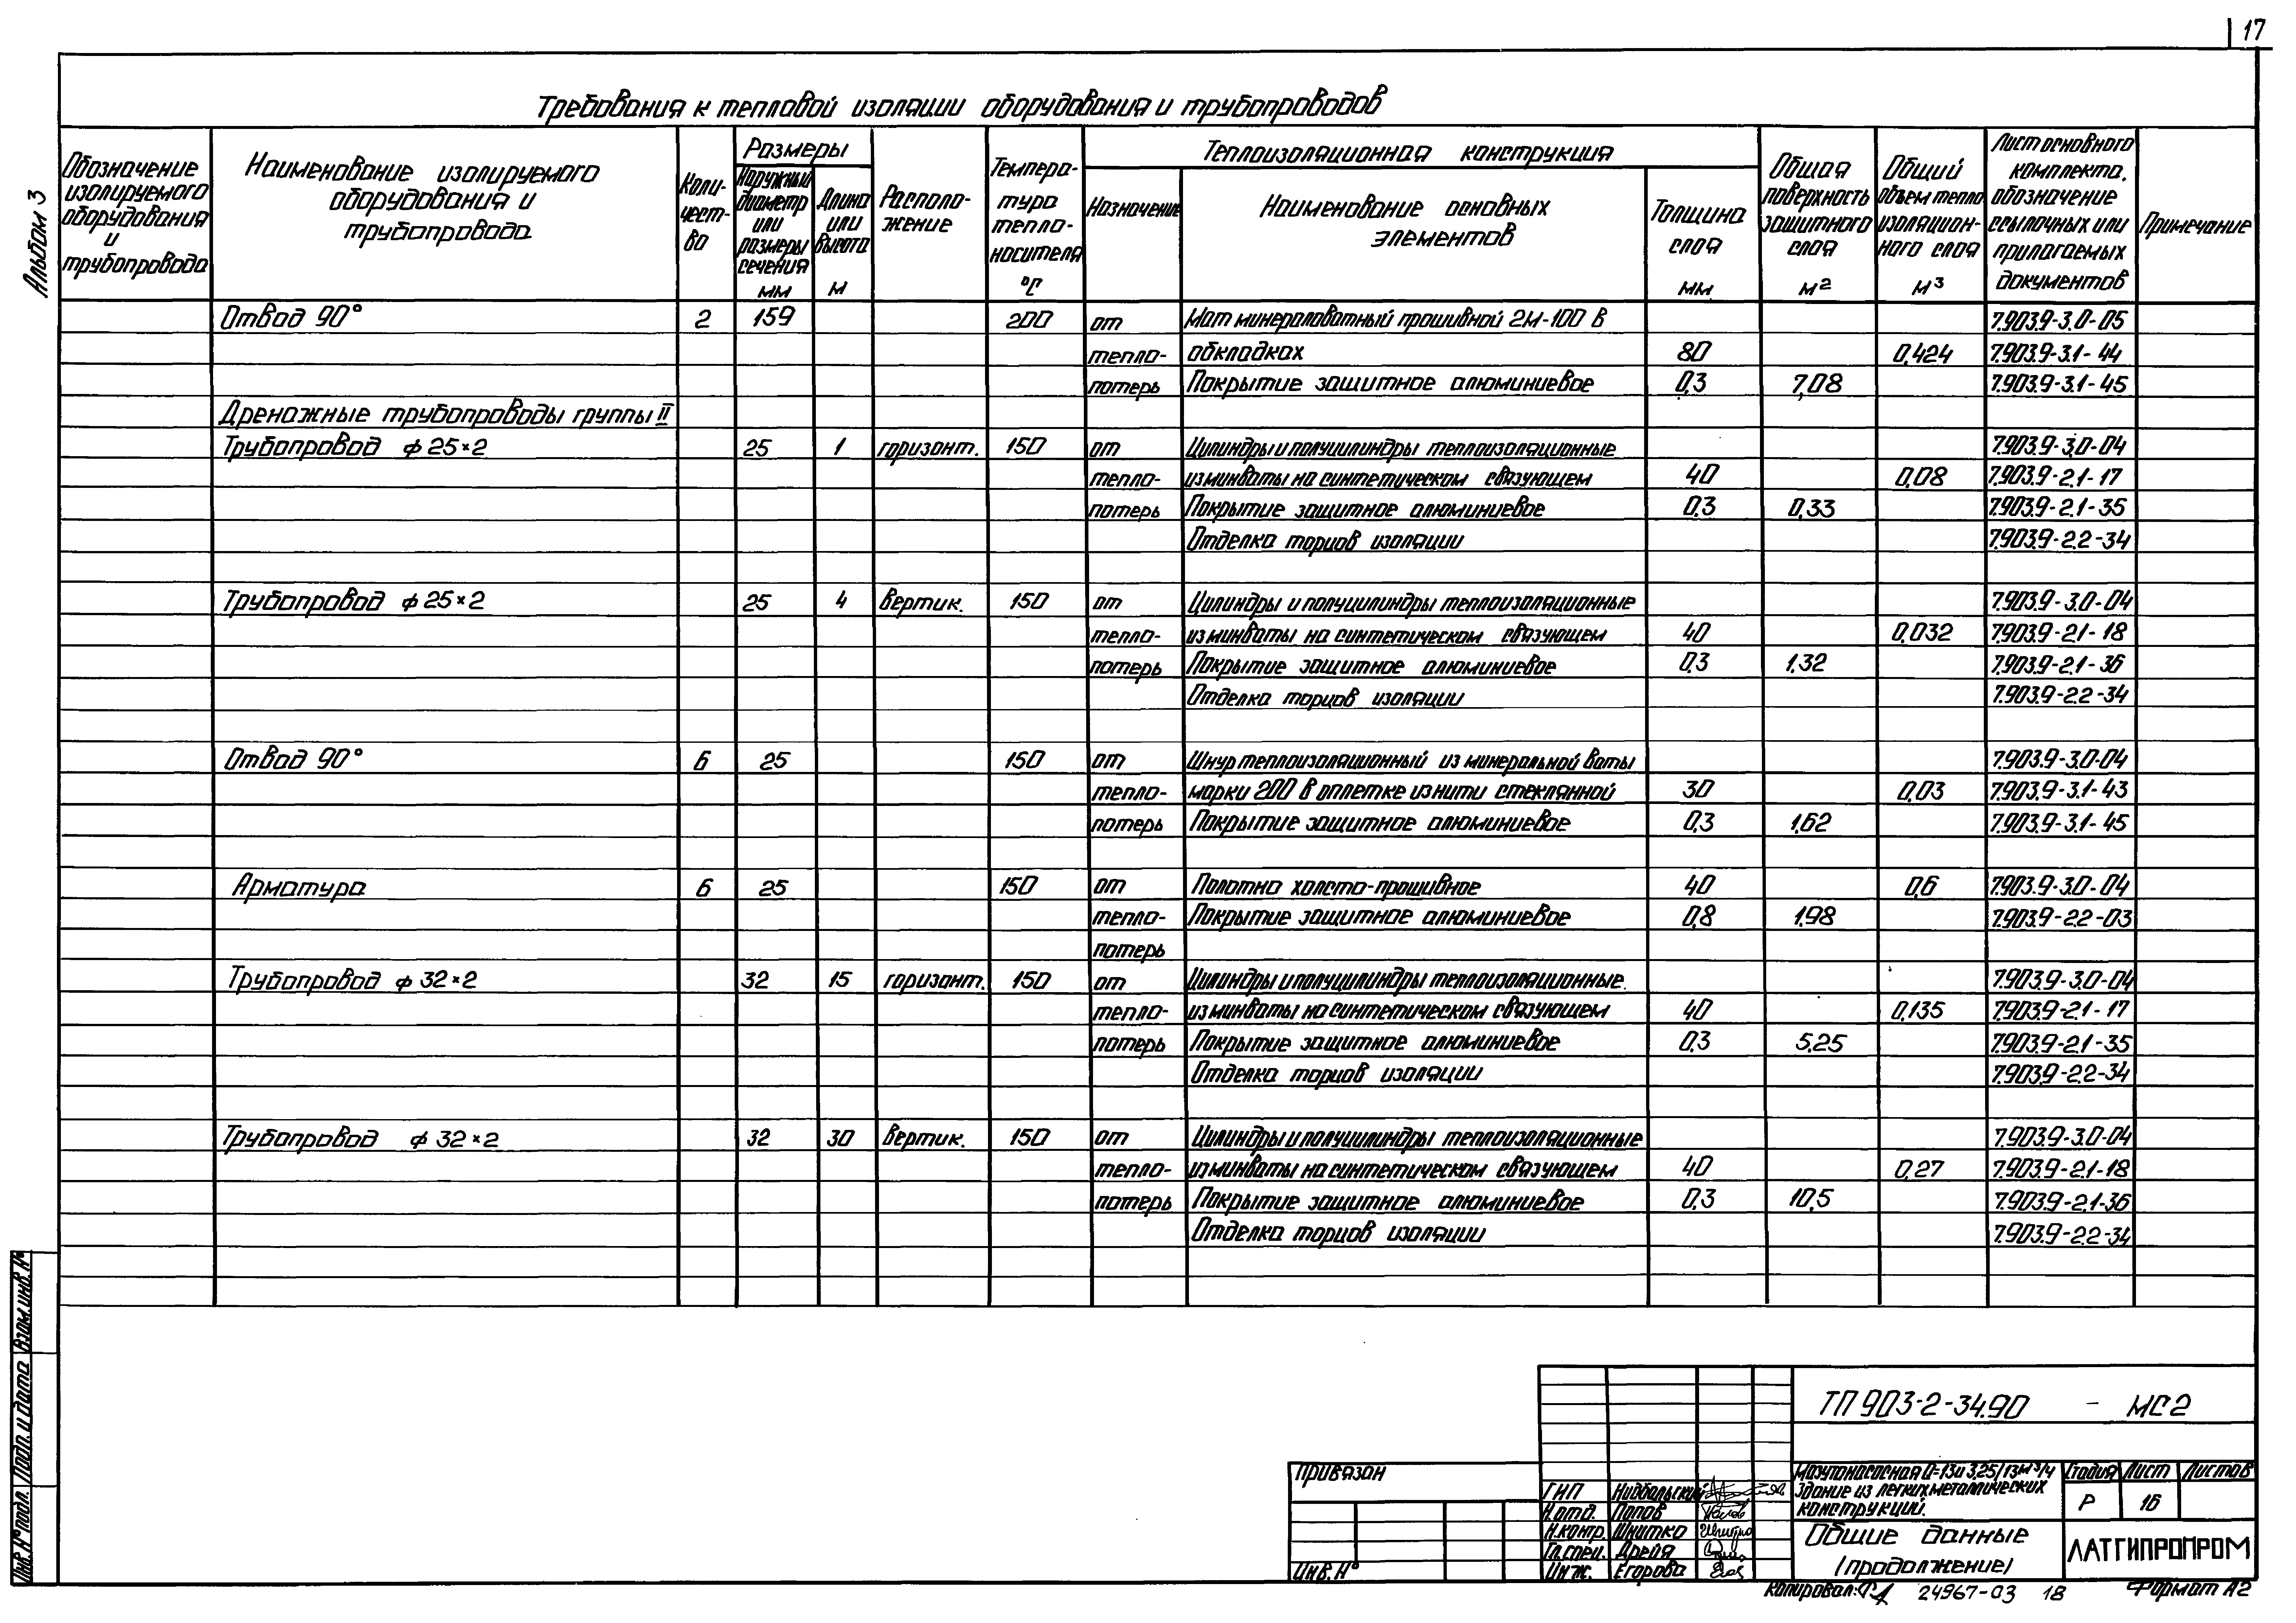 17
Альбом 3
Требования к тепловой изоляции оборудования и трубопроводов
Обозначение изолируемого оборудования и трубопровода
Наименование изолируемого оборудования и трубопровода
Коли-чест-во
Размеры
Наружный диаметр или размеры сечения мм
Длина или высота м
Располо-жение
Темпера-тура тепло-носителя °С
Теплоизоляционная конструкция
Назначение
Наименование основных элементов
Толщина слоя мм
Общая поверхность защитного слоя м2
Общий объем тепло изоляцион-ного слоя м3
Лист основного комплекта, обозначение ссылочных или прилагаемых документов
Примечание
Отвод 90° 2 159 200 от Мат минераловатный прошивной 2М-100 в 7.903.9-3.0-05
тепло- обкладках 80 0,424 7.903.9-3.1-44
потерь Покрытие защитное алюминиевое 0,3 7,08 7.903.9-3.1-45
Дренажные трубопроводы группы II
Трубопровод ф 25×2 25 1 горизонт. 150 от Цилиндры и полуцилиндры теплоизоляционные 7.903.9-3.0-04
тепло- из минваты на синтетическом связующем 40 0,08 7.903.9-2.1-17
потерь Покрытие защитное алюминиевое 0,3 0,33 7.903.9-2.1-35
Отделка торцов изоляции 7.903.9-2.2-34
Трубопровод ф 25×2 25 4 вертик. 150 от Цилиндры и полуцилиндры теплоизоляционные 7.903.9-3.0-04
тепло- из минваты на синтетическом связующем 40 0,032 7.903.9-2.1-18
потерь Покрытие защитное алюминиевое 0,3 1,32 7.903.9-2.1-36
Отделка торцов изоляции 7.903.9-2.2-34
Отвод 90° 6 25 150 от Шнур теплоизоляционный из минеральной ваты 7.903.9-3.0-04
тепло- марки 200 в оплетке из нити стеклянной 30 0,03 7.903.9-3.1-43
потерь Покрытие защитное алюминиевое 0,3 1,62 7.903.9-3.1-45
Арматура 6 25 150 от Полотно холсто-прошивное 40 0,6 7.903.9-3.0-04
тепло- Покрытие защитное алюминиевое 0,8 1,98 7.903.9-2.2-03
потерь
Трубопровод ф 32×2 32 15 горизонт. 150 от Цилиндры и полуцилиндры теплоизоляционные 7.903.9-3.0-04
тепло- из минваты на синтетическом связующем 40 0,135 7.903.9-2.1-17
потерь Покрытие защитное алюминиевое 0,3 5,25 7.903.9-2.1-35
Отделка торцов изоляции 7.903.9-2.2-34
Трубопровод ф 32×2 32 30 вертик. 150 от Цилиндры и полуцилиндры теплоизоляционные 7.903.9-3.0-04
тепло- из минваты на синтетическом связующем 40 0,27 7.903.9-2.1-18
потерь Покрытие защитное алюминиевое 0,3 10,5 7.903.9-2.1-36
Отделка торцов изоляции 7.903.9-2.2-34
Инв. № подл. Подп. и дата Взам. инв. №
ТП 903-2-34.90 - МС2
Привязан
Инв. №
ГИП Нидбальский
Н.отд. Попов
Н.контр. Шнитко
Гл.спец. Дрейя
Инж. Егорова
Мазутонасосная Q=13и 3,25/13м3/ч
Здание из легких металлических
конструкций.
Стадия Лист Листов
Р 16
Общие данные
(продолжение)
ЛАТГИПРОПРОМ
Копировал: 24967-03 18 Формат А2